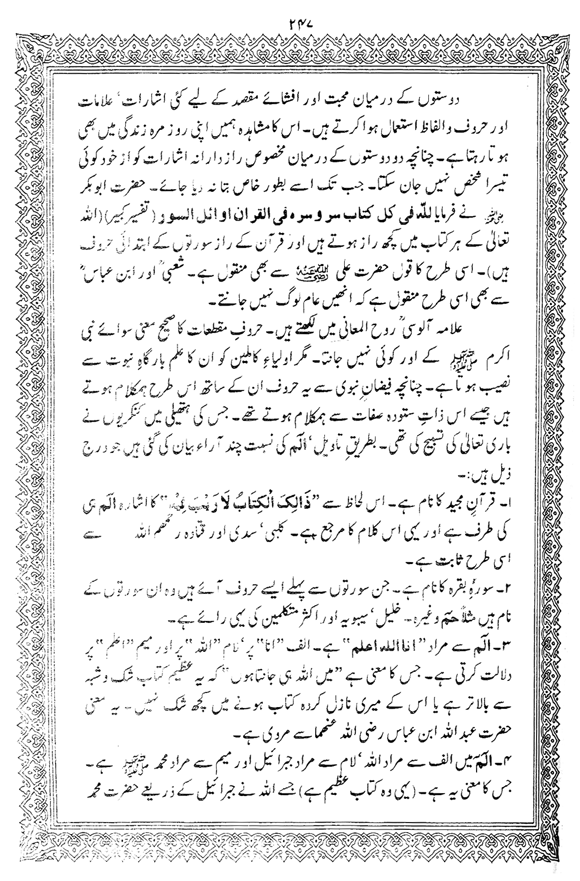 ۲۴۷
دوستوں کے درمیان محبت اور افشائے مقصد کے لیے کئی اشارات‘ علامات
اور حروف والفاظ استعمال ہوا کرتے ہیں۔ اس کا مشاہدہ ہمیں اپنی روز مرہ زندگی میں بھی
ہوتا رہتا ہے۔ چنانچہ دو دوستوں کے درمیان مخصوص راز دارانہ اشارات کو از خود کوئی
تیسرا شخص نہیں جان سکتا۔ جب تک اسے بطور خاص بتا نہ دیا جائے۔ حضرت ابوبکر
نے فرمایا للّٰہ فی کل کتاب سر و سرہ فی القران اوائل السور (تفسیر کبیر) (اللہ
تعالیٰ کے ہر کتاب میں کچھ راز ہوتے ہیں اور قرآن کے راز سورتوں کے ابتدائی حروف
ہیں)۔ اسی طرح کا قول حضرت علی سے بھی منقول ہے۔ شعبیؒ اور ابن عباسؓ
سے بھی اسی طرح منقول ہے کہ انھیں عام لوگ نہیں جانتے۔
علامہ آلوسیؒ روح المعانی میں لکھتے ہیں۔ حروف مقطعات کا صحیح معنی سوائے نبی
اکرم ﷺ کے اور کوئی نہیں جانتا۔ مگر اولیاءِ کاملین کو ان کا علم بارگاہِ نبوت سے
نصیب ہوتا ہے۔ چنانچہ فیضانِ نبوی سے یہ حروف ان کے ساتھ اس طرح ہمکلام ہوتے
ہیں جیسے اس ذاتِ ستودہ صفات سے ہمکلام ہوتے تھے۔ جس کی ہتھیلی میں کنکریوں نے
باری تعالیٰ کی تسبیح کی تھی۔ بطریقِ تاویل‘ الٓمٓ کی نسبت چند آراء بیان کی گئی ہیں جو درج
ذیل ہیں:۔
۱۔ قرآن مجید کا نام ہے۔ اس لحاظ سے ”ذَالِکَ الْکِتَابُ لَا رَیْبَ فِیْہِ“ کا اشارہ الٓمٓ ہی
کی طرف ہے اور یہی اس کلام کا مرجع ہے۔ کلبی‘ سدی اور قتادہ رحمھم اللہ سے
اسی طرح ثابت ہے۔
۲۔ سورۂ بقرہ کا نام ہے۔ جن سورتوں سے پہلے ایسے حروف آئے ہیں وہ ان سورتوں کے
نام ہیں مثلاً حٰمٓ وغیرہ۔ خلیل‘ سیبویہ اور اکثر متکلمین کی یہی رائے ہے۔
۳۔ الٓمٓ سے مراد ”انا اللہ اعلم“ ہے۔ الف ”انا“ پر‘ لام ”اللہ“ پر اور میم ”اعلم“ پر
دلالت کرتی ہے۔ جس کا معنی ہے ”میں اللہ ہی جانتا ہوں“ کہ یہ عظیم کتاب شک و شبہ
سے بالاتر ہے یا اس کے میری نازل کردہ کتاب ہونے میں کچھ شک نہیں۔ یہ معنی
حضرت عبد اللہ ابن عباس رضی اللہ عنھما سے مروی ہے۔
۴۔ الٓمٓ میں الف سے مراد اللہ‘ لام سے مراد جبرائیل اور میم سے مراد محمد ﷺ ہے۔
جس کا معنی یہ ہے۔ (یہی وہ کتاب عظیم ہے) جسے اللہ نے جبرائیل کے ذریعے حضرت محمد